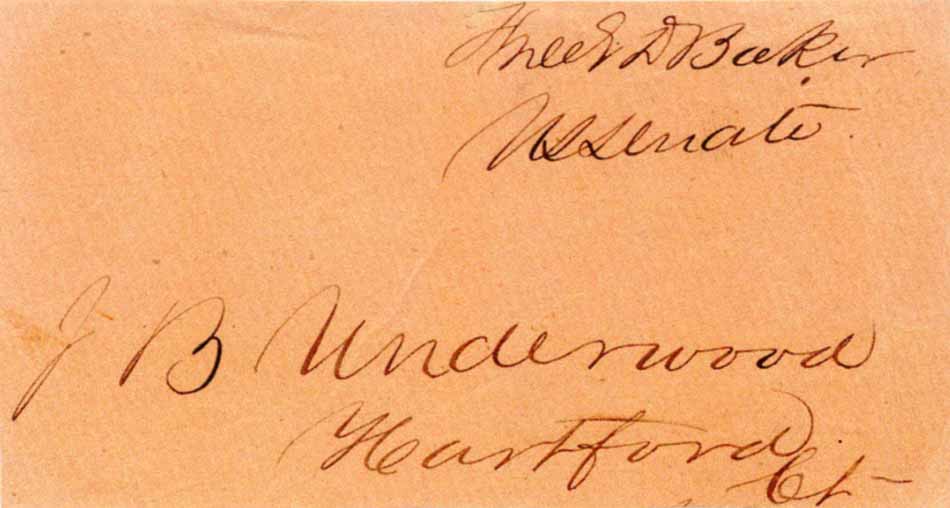 Free E D Baker
US Senate
J B Underwood
Hartford
Ct